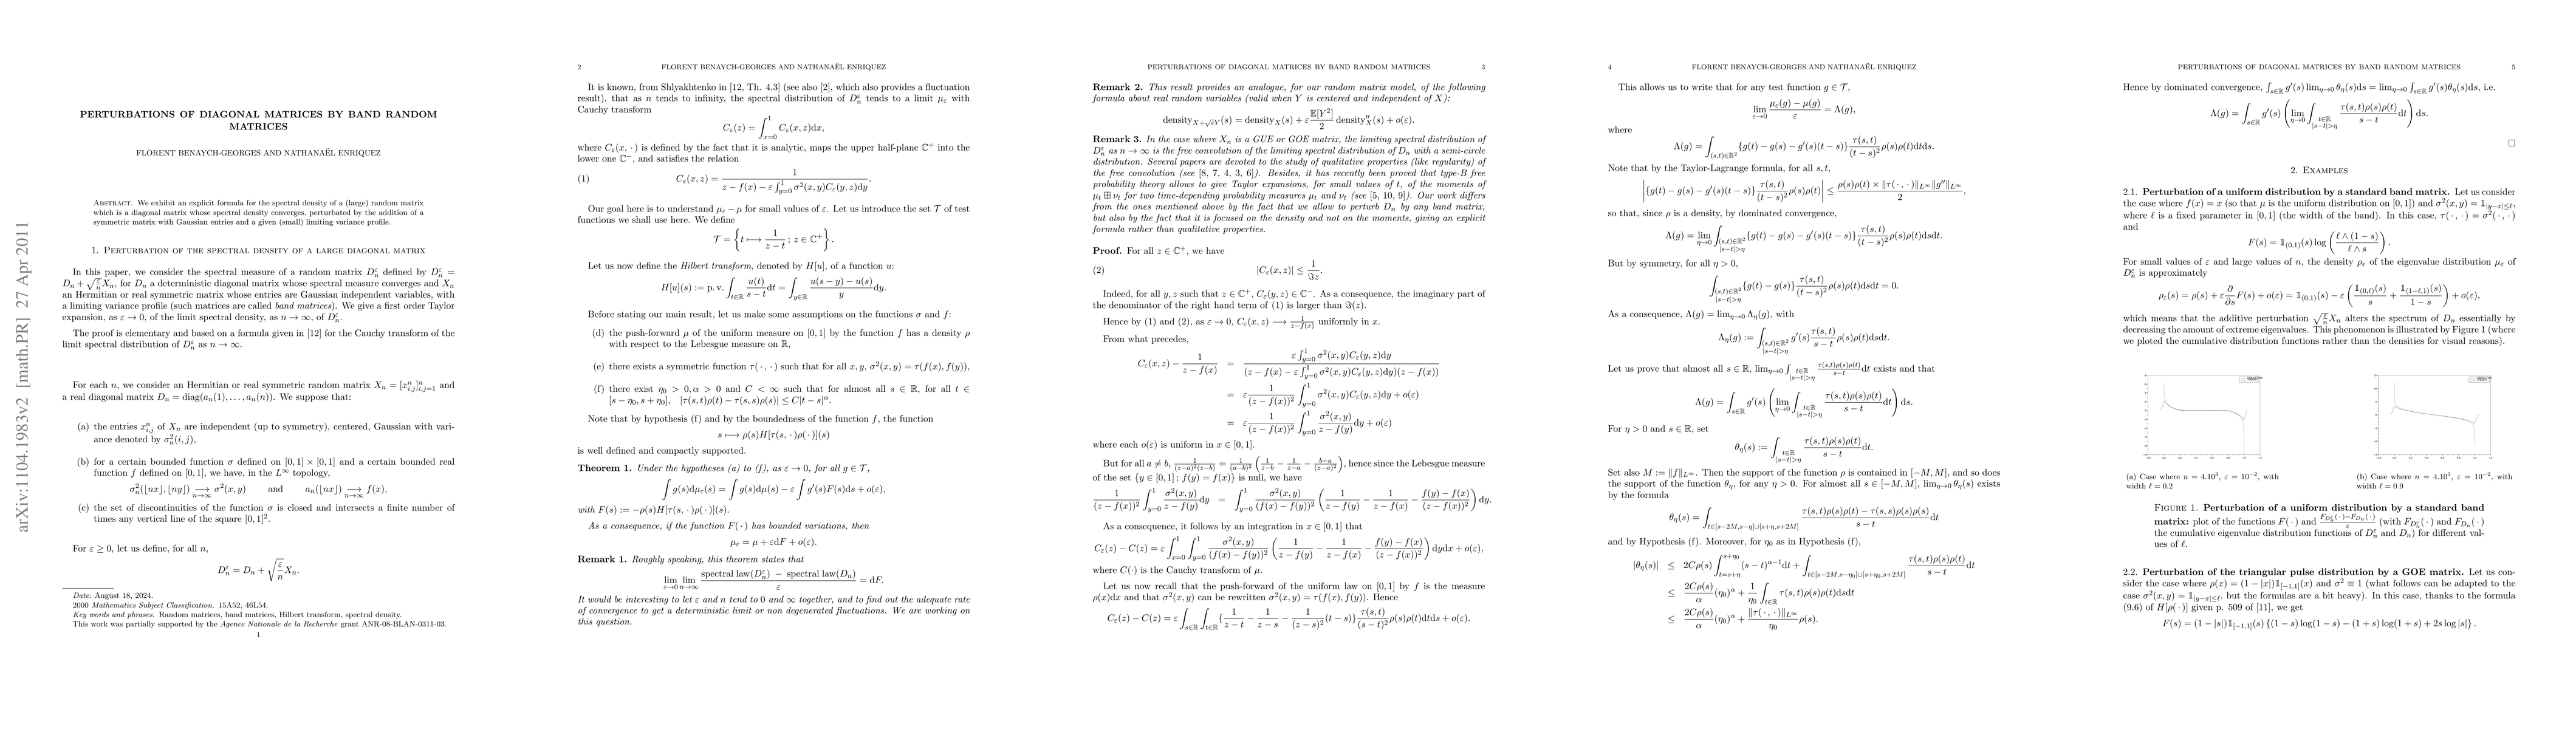 arXiv:1104.1983v2 [math.PR] 27 Apr 2011
PERTURBATIONS OF DIAGONAL MATRICES BY BAND RANDOM
MATRICES
FLORENT BENAYCH-GEORGES AND NATHANAËL ENRIQUEZ
Abstract. We exhibit an explicit formula for the spectral density of a (large) random matrix
which is a diagonal matrix whose spectral density converges, perturbed by the addition of a
symmetric matrix with Gaussian entries and a given (small) limiting variance profile.
1. Perturbation of the spectral density of a large diagonal matrix
In this paper, we consider the spectral measure of a random matrix D_n^ε defined by D_n^ε =
D_n + √(ε/n) X_n, for D_n a deterministic diagonal matrix whose spectral measure converges and X_n
an Hermitian or real symmetric matrix whose entries are Gaussian independent variables, with
a limiting variance profile (such matrices are called band matrices). We give a first order Taylor
expansion, as ε → 0, of the limit spectral density, as n → ∞, of D_n^ε.
The proof is elementary and based on a formula given in [12] for the Cauchy transform of the
limit spectral distribution of D_n^ε as n → ∞.
For each n, we consider an Hermitian or real symmetric random matrix X_n = [x_{i,j}^n]_{i,j=1}^n and
a real diagonal matrix D_n = diag(a_n(1), . . . , a_n(n)). We suppose that:
(a) the entries x_{i,j}^n of X_n are independent (up to symmetry), centered, Gaussian with vari-
ance denoted by σ_n^2(i, j),
(b) for a certain bounded function σ defined on [0, 1] × [0, 1] and a certain bounded real
function f defined on [0, 1], we have, in the L^∞ topology,
σ_n^2(⌊nx⌋, ⌊ny⌋) →_{n→∞} σ^2(x, y) and a_n(⌊nx⌋) →_{n→∞} f(x),
(c) the set of discontinuities of the function σ is closed and intersects a finite number of
times any vertical line of the square [0, 1]^2.
For ε ≥ 0, let us define, for all n,
D_n^ε = D_n + √(ε/n) X_n.
Date: August 18, 2024.
2000 Mathematics Subject Classification. 15A52, 46L54.
Key words and phrases. Random matrices, band matrices, Hilbert transform, spectral density.
This work was partially supported by the Agence Nationale de la Recherche grant ANR-08-BLAN-0311-03.
1
2 FLORENT BENAYCH-GEORGES AND NATHANAËL ENRIQUEZ
It is known, from Shlyakhtenko in [12, Th. 4.3] (see also [2], which also provides a fluctuation
result), that as n tends to infinity, the spectral distribution of D_n^ε tends to a limit μ_ε with
Cauchy transform
C_ε(z) = ∫_{x=0}^1 C_ε(x, z)dx,
where C_ε(x, ·) is defined by the fact that it is analytic, maps the upper half-plane ℂ^+ into the
lower one ℂ^−, and satisfies the relation
(1) C_ε(x, z) = 1 / (z − f(x) − ε ∫_{y=0}^1 σ^2(x, y)C_ε(y, z)dy).
Our goal here is to understand μ_ε − μ for small values of ε. Let us introduce the set 𝒯 of test
functions we shall use here. We define
𝒯 = { t ⟼ 1/(z − t) ; z ∈ ℂ^+ }.
Let us now define the Hilbert transform, denoted by H[u], of a function u:
H[u](s) := p. v. ∫_{t∈ℝ} u(t)/(s − t) dt = ∫_{y∈ℝ} (u(s − y) − u(s))/y dy.
Before stating our main result, let us make some assumptions on the functions σ and f:
(d) the push-forward μ of the uniform measure on [0, 1] by the function f has a density ρ
with respect to the Lebesgue measure on ℝ,
(e) there exists a symmetric function τ(·, ·) such that for all x, y, σ^2(x, y) = τ(f(x), f(y)),
(f) there exist η_0 > 0, α > 0 and C < ∞ such that for almost all s ∈ ℝ, for all t ∈
[s − η_0, s + η_0], |τ(s, t)ρ(t) − τ(s, s)ρ(s)| ≤ C|t − s|^α.
Note that by hypothesis (f) and by the boundedness of the function f, the function
s ⟼ ρ(s)H[τ(s, ·)ρ(·)](s)
is well defined and compactly supported.
Theorem 1. Under the hypotheses (a) to (f), as ε → 0, for all g ∈ 𝒯,
∫ g(s)dμ_ε(s) = ∫ g(s)dμ(s) − ε ∫ g′(s)F(s)ds + o(ε),
with F(s) := −ρ(s)H[τ(s, ·)ρ(·)](s).
As a consequence, if the function F(·) has bounded variations, then
μ_ε = μ + εdF + o(ε).
Remark 1. Roughly speaking, this theorem states that
lim_{ε→0} lim_{n→∞} (spectral law(D_n^ε) − spectral law(D_n))/ε = dF.
It would be interesting to let ε and n tend to 0 and ∞ together, and to find out the adequate rate
of convergence to get a deterministic limit or non degenerated fluctuations. We are working on
this question.
PERTURBATIONS OF DIAGONAL MATRICES BY BAND RANDOM MATRICES 3
Remark 2. This result provides an analogue, for our random matrix model, of the following
formula about real random variables (valid when Y is centered and independent of X):
density_{X+√εY}(s) = density_X(s) + ε (𝔼[Y^2]/2) density″_X(s) + o(ε).
Remark 3. In the case where X_n is a GUE or GOE matrix, the limiting spectral distribution of
D_n^ε as n → ∞ is the free convolution of the limiting spectral distribution of D_n with a semi-circle
distribution. Several papers are devoted to the study of qualitative properties (like regularity) of
the free convolution (see [8, 7, 4, 3, 6]). Besides, it has recently been proved that type-B free
probability theory allows to give Taylor expansions, for small values of t, of the moments of
μ_t ⊞ ν_t for two time-depending probability measures μ_t and ν_t (see [5, 10, 9]). Our work differs
from the ones mentioned above by the fact that we allow to perturb D_n by any band matrix,
but also by the fact that it is focused on the density and not on the moments, giving an explicit
formula rather than qualitative properties.
Proof. For all z ∈ ℂ^+, we have
(2) |C_ε(x, z)| ≤ 1/ℑz.
Indeed, for all y, z such that z ∈ ℂ^+, C_ε(y, z) ∈ ℂ^−. As a consequence, the imaginary part of
the denominator of the right hand term of (1) is larger than ℑ(z).
Hence by (1) and (2), as ε → 0, C_ε(x, z) ⟶ 1/(z−f(x)) uniformly in x.
From what precedes,
C_ε(x, z) − 1/(z − f(x)) = ε ∫_{y=0}^1 σ^2(x, y)C_ε(y, z)dy / ((z − f(x) − ε ∫_{y=0}^1 σ^2(x, y)C_ε(y, z)dy)(z − f(x)))
= ε 1/(z − f(x))^2 ∫_{y=0}^1 σ^2(x, y)C_ε(y, z)dy + o(ε)
= ε 1/(z − f(x))^2 ∫_{y=0}^1 σ^2(x, y)/(z − f(y)) dy + o(ε)
where each o(ε) is uniform in x ∈ [0, 1].
But for all a ≠ b, 1/((z−a)^2(z−b)) = 1/(a−b)^2 (1/(z−b) − 1/(z−a) − (b−a)/(z−a)^2), hence since the Lebesgue measure
of the set {y ∈ [0, 1] ; f(y) = f(x)} is null, we have
1/(z − f(x))^2 ∫_{y=0}^1 σ^2(x, y)/(z − f(y)) dy = ∫_{y=0}^1 σ^2(x, y)/(f(x) − f(y))^2 (1/(z − f(y)) − 1/(z − f(x)) − (f(y) − f(x))/(z − f(x))^2) dy.
As a consequence, it follows by an integration in x ∈ [0, 1] that
C_ε(z) − C(z) = ε ∫_{x=0}^1 ∫_{y=0}^1 σ^2(x, y)/(f(x) − f(y))^2 (1/(z − f(y)) − 1/(z − f(x)) − (f(y) − f(x))/(z − f(x))^2) dydx + o(ε),
where C(·) is the Cauchy transform of μ.
Let us now recall that the push-forward of the uniform law on [0, 1] by f is the measure
ρ(x)dx and that σ^2(x, y) can be rewritten σ^2(x, y) = τ(f(x), f(y)). Hence
C_ε(z) − C(z) = ε ∫_{s∈ℝ} ∫_{t∈ℝ} {1/(z − t) − 1/(z − s) − 1/(z − s)^2 (t − s)} τ(s, t)/(s − t)^2 ρ(s)ρ(t)dtds + o(ε).
4 FLORENT BENAYCH-GEORGES AND NATHANAËL ENRIQUEZ
This allows us to write that for any test function g ∈ 𝒯,
lim_{ε→0} (μ_ε(g) − μ(g))/ε = Λ(g),
where
Λ(g) = ∫_{(s,t)∈ℝ^2} {g(t) − g(s) − g′(s)(t − s)} τ(s, t)/(t − s)^2 ρ(s)ρ(t)dtds.
Note that by the Taylor-Lagrange formula, for all s, t,
|{g(t) − g(s) − g′(s)(t − s)} τ(s, t)/(t − s)^2 ρ(s)ρ(t)| ≤ ρ(s)ρ(t) × ‖τ(·, ·)‖_{L^∞}‖g″‖_{L^∞}/2,
so that, since ρ is a density, by dominated convergence,
Λ(g) = lim_{η→0} ∫_{(s,t)∈ℝ^2, |s−t|>η} {g(t) − g(s) − g′(s)(t − s)} τ(s, t)/(t − s)^2 ρ(s)ρ(t)dtds.
But by symmetry, for all η > 0,
∫_{(s,t)∈ℝ^2, |s−t|>η} {g(t) − g(s)} τ(s, t)/(t − s)^2 ρ(s)ρ(t)dtds = 0.
As a consequence, Λ(g) = lim_{η→0} Λ_η(g), with
Λ_η(g) := ∫_{(s,t)∈ℝ^2, |s−t|>η} g′(s) τ(s, t)/(s − t) ρ(s)ρ(t)dtds.
Let us prove that almost all s ∈ ℝ, lim_{η→0} ∫_{t∈ℝ, |s−t|>η} τ(s,t)ρ(s)ρ(t)/(s−t) dt exists and that
Λ(g) = ∫_{s∈ℝ} g′(s) (lim_{η→0} ∫_{t∈ℝ, |s−t|>η} τ(s, t)ρ(s)ρ(t)/(s − t) dt) ds.
For η > 0 and s ∈ ℝ, set
θ_η(s) := ∫_{t∈ℝ, |s−t|>η} τ(s, t)ρ(s)ρ(t)/(s − t) dt.
Set also M := ‖f‖_{L^∞}. Then the support of the function ρ is contained in [−M, M], and so does
the support of the function θ_η, for any η > 0. For almost all s ∈ [−M, M], lim_{η→0} θ_η(s) exists
by the formula
θ_η(s) = ∫_{t∈[s−2M,s−η]∪[s+η,s+2M]} (τ(s, t)ρ(s)ρ(t) − τ(s, s)ρ(s)ρ(s))/(s − t) dt
and by Hypothesis (f). Moreover, for η_0 as in Hypothesis (f),
|θ_η(s)| ≤ 2Cρ(s) ∫_{t=s+η}^{s+η_0} (s − t)^{α−1}dt + ∫_{t∈[s−2M,s−η_0]∪[s+η_0,s+2M]} τ(s, t)ρ(s)ρ(t)/(s − t) dt
≤ 2Cρ(s)/α (η_0)^α + 1/η_0 ∫_{t∈ℝ} τ(s, t)ρ(s)ρ(t)dsdt
≤ 2Cρ(s)/α (η_0)^α + ‖τ(·, ·)‖_{L^∞}/η_0 ρ(s).
PERTURBATIONS OF DIAGONAL MATRICES BY BAND RANDOM MATRICES 5
Hence by dominated convergence, ∫_{s∈ℝ} g′(s) lim_{η→0} θ_η(s)ds = lim_{η→0} ∫_{s∈ℝ} g′(s)θ_η(s)ds, i.e.
Λ(g) = ∫_{s∈ℝ} g′(s) (lim_{η→0} ∫_{t∈ℝ, |s−t|>η} τ(s, t)ρ(s)ρ(t)/(s − t) dt) ds.
□
2. Examples
2.1. Perturbation of a uniform distribution by a standard band matrix. Let us consider
the case where f(x) = x (so that μ is the uniform distribution on [0, 1]) and σ^2(x, y) = 𝟙_{|y−x|≤ℓ},
where ℓ is a fixed parameter in [0, 1] (the width of the band). In this case, τ(·, ·) = σ^2(·, ·)
and
F(s) = 𝟙_{(0,1)}(s) log (ℓ ∧ (1 − s) / ℓ ∧ s).
For small values of ε and large values of n, the density ρ_ε of the eigenvalue distribution μ_ε of
D_n^ε is approximately
ρ_ε(s) = ρ(s) + ε ∂/∂s F(s) + o(ε) = 𝟙_{(0,1)}(s) − ε (𝟙_{(0,ℓ)}(s)/s + 𝟙_{(1−ℓ,1)}(s)/(1 − s)) + o(ε),
which means that the additive perturbation √(ε/n) X_n alters the spectrum of D_n essentially by
decreasing the amount of extreme eigenvalues. This phenomenon is illustrated by Figure 1 (where
we plotted the cumulative distribution functions rather than the densities for visual reasons).
(a) Case where n = 4.10^3, ε = 10^{−2}, with
width ℓ = 0.2
(b) Case where n = 4.10^3, ε = 10^{−2}, with
width ℓ = 0.9
Figure 1. Perturbation of a uniform distribution by a standard band
matrix: plot of the functions F(·) and (F_{D_n^ε}(·)−F_{D_n}(·))/ε (with F_{D_n^ε}(·) and F_{D_n}(·)
the cumulative eigenvalue distribution functions of D_n^ε and D_n) for different val-
ues of ℓ.
2.2. Perturbation of the triangular pulse distribution by a GOE matrix. Let us con-
sider the case where ρ(x) = (1 − |x|)𝟙_{[−1,1]}(x) and σ^2 ≡ 1 (what follows can be adapted to the
case σ^2(x, y) = 𝟙_{|y−x|≤ℓ}, but the formulas are a bit heavy). In this case, thanks to the formula
(9.6) of H[ρ(·)] given p. 509 of [11], we get
F(s) = (1 − |s|)𝟙_{[−1,1]}(s) {(1 − s) log(1 − s) − (1 + s) log(1 + s) + 2s log |s|}.